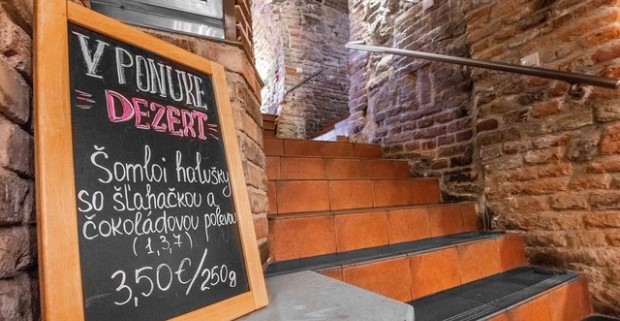 V PONUKE
DEZERT
Šomloi halušky
so šľahačkou a
čokoládovou polevou
(1,3,7)
3,50€/250g